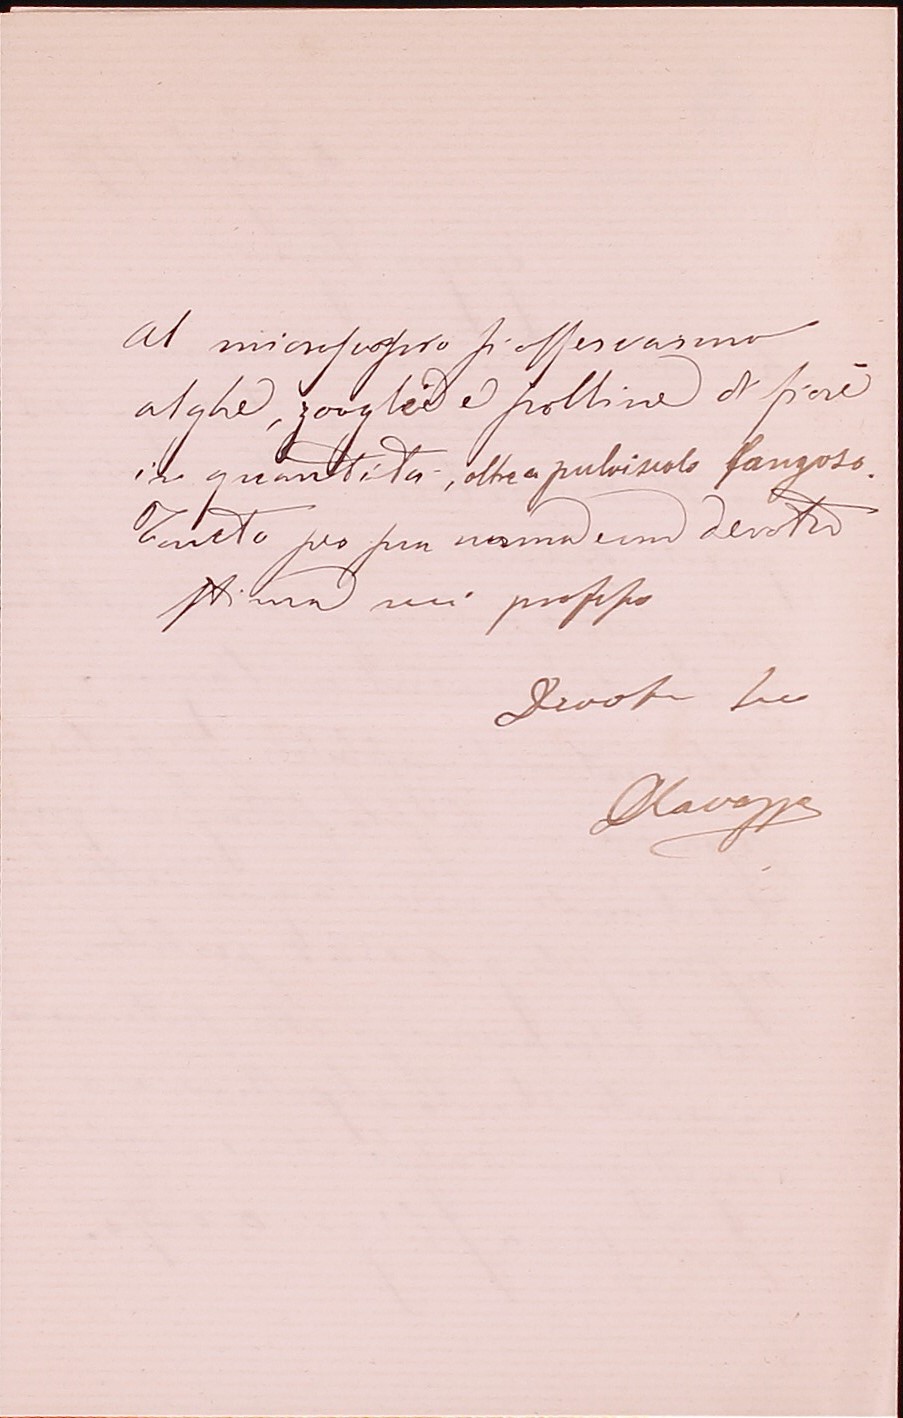 Al microscopio si osservarono
alghe, zooglee e polline di fiori
in quantità, oltre a pulviscolo fangoso.
Tanto per sua norma e con devota
stima mi professo
Devot suo